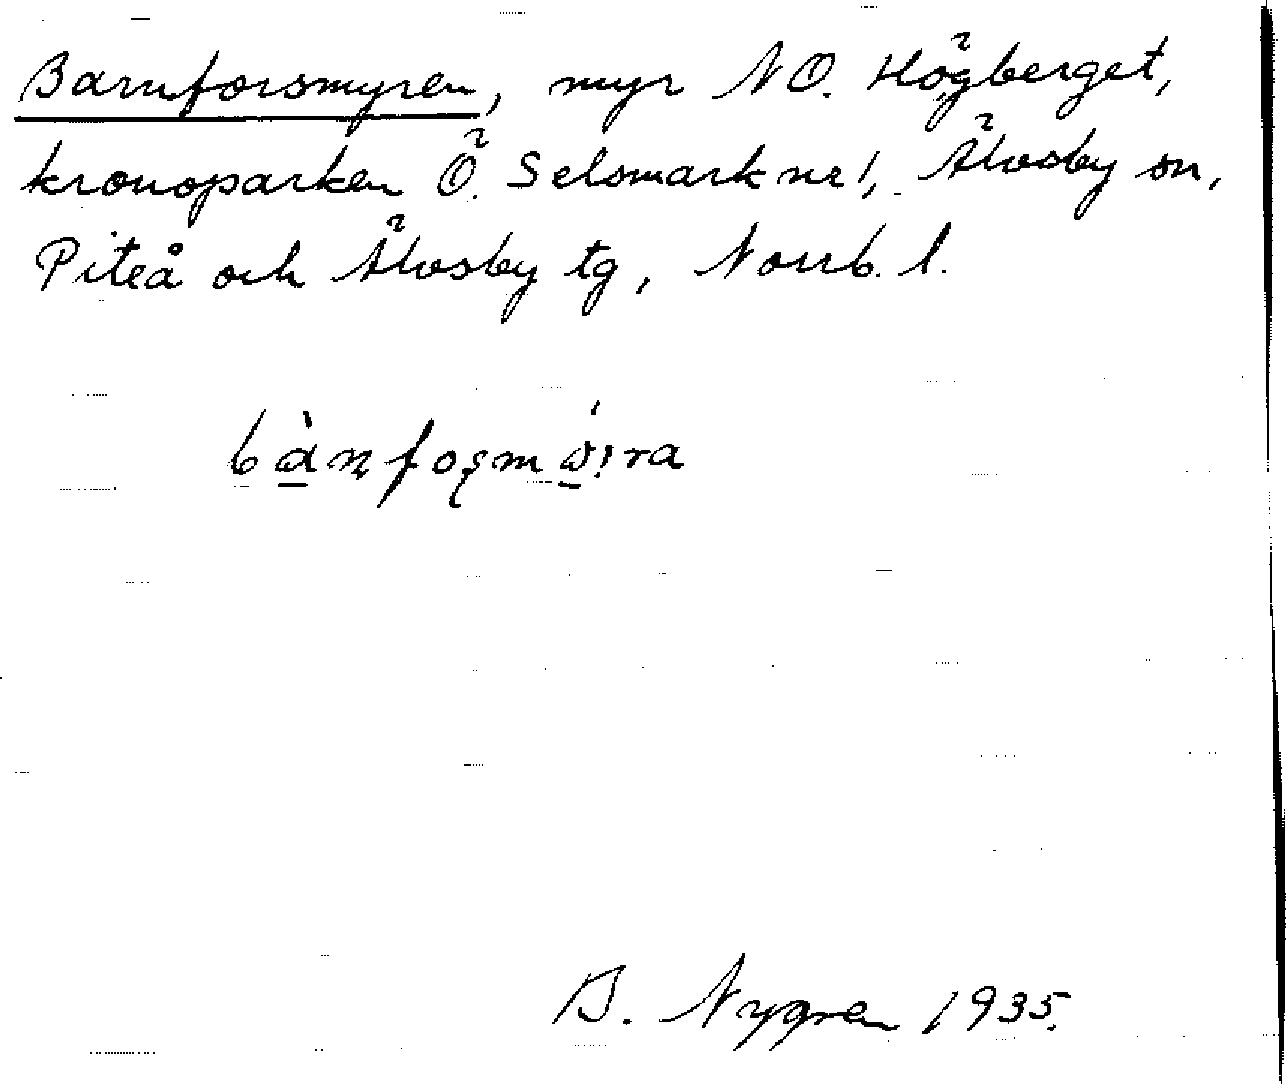 Barnforsmyren, myr NO. Högberget,
kronoparken Ö. Selsmark nr 1, Älvsby sn,
Piteå och Älvsby tg, Norrb. l.
B. Nygren 1935.